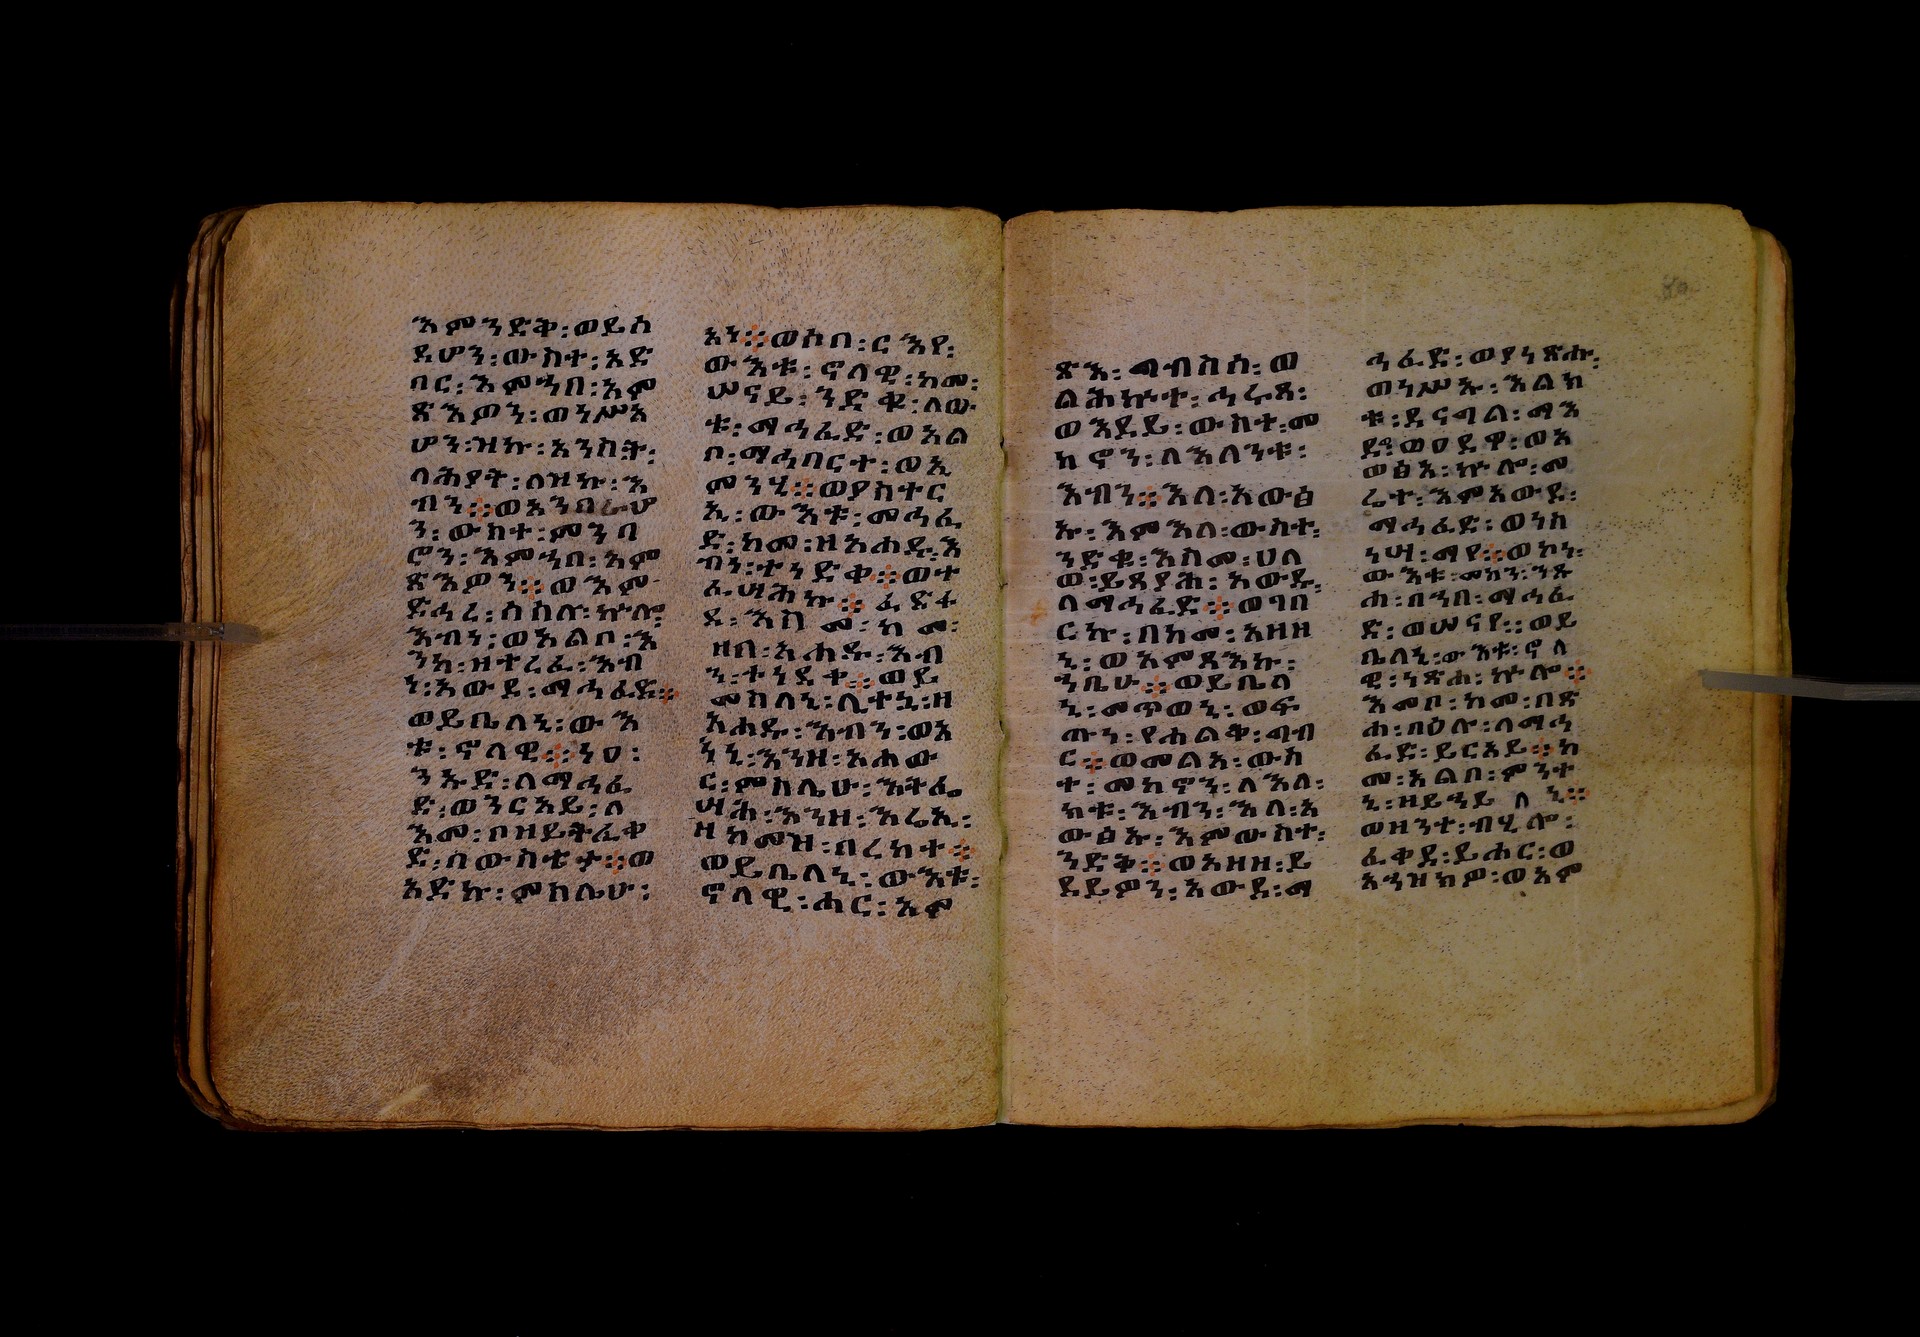 እምንድቅ፡ወይስ
ደሆን፡ውስተ፡አድ
ባር፡እምኀበ፡አም
ጽእዎን፡ወነሥአ
ሆን፡ዝኩ፡አንስት፡
ላሕያት፡ለዝኩ፡እ
ብን፡፡ወአንበሬሆ
ን፡ውስተ፡ምንባ
ሮን፡እምኀበ፡አም
ጽእዎን፡፡ወእም
ድኅረ፡ሰስሉ፡ኵሎ፡
እብነ፡ወአልቦ፡እ
ንከ፡ዝተረፈ፡እብ
ነ፡አውደ፡ማኅፈድ፡፡
ወይቤለኒ፡ውእ
ቱ፡ኖላዊ፡፡ነዐ፡
ንኡድ፡ለማኅፈ
ድ፡ወንርአይ፡ለ
እመ፡ቦዘይትፈቀ
ድ፡ሰውስቴታ፡፡ወ
አድኩ፡ምስሌሁ፡
አነ፡፡ወሶበ፡ርእየ፡
ውእቱ፡ኖላዊ፡ከመ፡
ሠናይ፡ንድቁ፡ለው
ቱ፡ማኅፈድ፡ወአል
ቦ፡ማኅበርተ፡ወኢ
ምንሂ፡፡ወያስተር
ኢ፡ውእቱ፡መኅፈ
ድ፡ከመ፡ዘአሐዱ፡እ
ብነ፡ተነድቀ፡፡ወተ
ፈሣሕኩ፡፡ፈድፋ
ደ፡እስመ፡ከመ፡
ዘበ፡አሐዱ፡እብ
ን፡ተነደተ፡፡ወይ
መስለኒ፡ሊተኒ፡ዘ
አሐዱ፡እብን፡ወአ
ነኒ፡እንዘ፡አሐው
ር፡ምስሌሁ፡እትፈ
ሣሕ፡እንዘ፡እሬኢ፡
ዘከመዝ፡በረከተ፡፡
ወይቤለኒ፡ውእቱ፡
ኖላዊ፡ሐር፡አም
ጽእ፡ጫብስስ፡ወ
ልሕኵተ፡ኅሩጸ፡
ወእደይ፡ውስተ፡መ
ከኖን፡ለእለንቱ፡
እብን፡፡እለ፡አውፅ
ኡ፡እምእለ፡ውስተ፡
ንድቁ፡እስመ፡ሀለ
ወ፡ይጸያሕ፡አውዱ፡
ለማኅፈድ፡፡ወገበ
ርኩ፡በከመ፡አዘዘ
ኒ፡ወአምጻእኩ፡
ንቤሁ፡፡ወይቤለ
ኒ፡መጥወኒ፡ወፍ
ጡን፡የሐልቅ፡ጫብ
ር፡፡ወመልአ፡ውስ
ተ፡መከኖን፡ለእለ፡
ክቱ፡እብን፡እለ፡አ
ውፅኡ፡እምውስተ፡
ንድቅ፡፡ወአዘዘ፡ይ
ደይምን፡አውደ፡ማ
ኅፈድ፡ወያነጽሑ፡
ወነሥኡ፡እልክ
ቱ፡ደናግል፡ማን
ደ፡ወዐደዋ፡ወአ
ወፅአ፡ኵሎ፡መ
ሬተ፡እምአውደ፡
ማኅፈድ፡ወነስ
ነሣ፡ማየ፡፡ወኮነ፡
ውእቱ፡መከን፡ንጹ
ሐ፡በኀበ፡ማኅፈ
ድ፡ወሠናየ፡፡ወይ
ቤለኒ፡ውእቱ፡ኖላ
ዊ፡ነጽሐ፡ኵሎ፡፡
እመቦ፡ከመ፡በጽ
ሐ፡በዕሉ፡ለማኅ
ፈድ፡ይርአይ፡፡ከ
መ፡አልቦ፡ምንተ
ኒ፡ዘይኀይለነ፡፡
ወዘንተ፡ብሂሎ፡
ፈቀደ፡ይሐር፡ወ
አኀዝክዎ፡ወአም